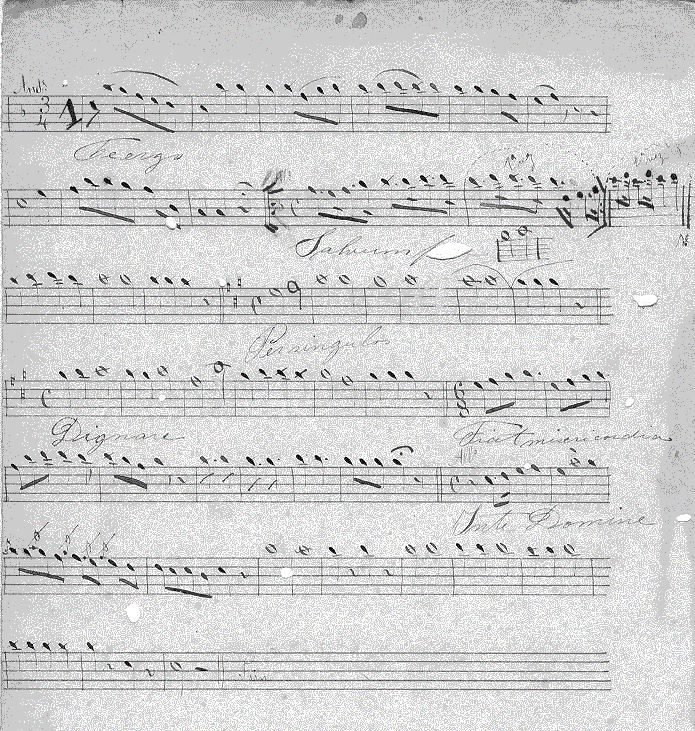 And.te
3
4
1
Te ergo
Salvum f
Per singulos
Dignare
Fiat misericordia
In te Domine
Fin